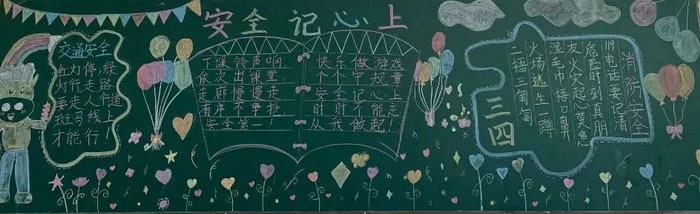 安全记心上
交通安全
红灯停绿
灯行走路
要走人行道
班马线上
才能行!
下课铃声响
依次出课堂
走廊慢慢走
有序不争抢
安全第一!
快乐做游戏
个个守规章
安全记心上
时时不能忘
从我做起!
消防安全
119电话要记清
危险时刻真朋
友火灾起心莫急
湿毛巾捂口鼻
火场逃生一蹲
二捂三匍匐
三四